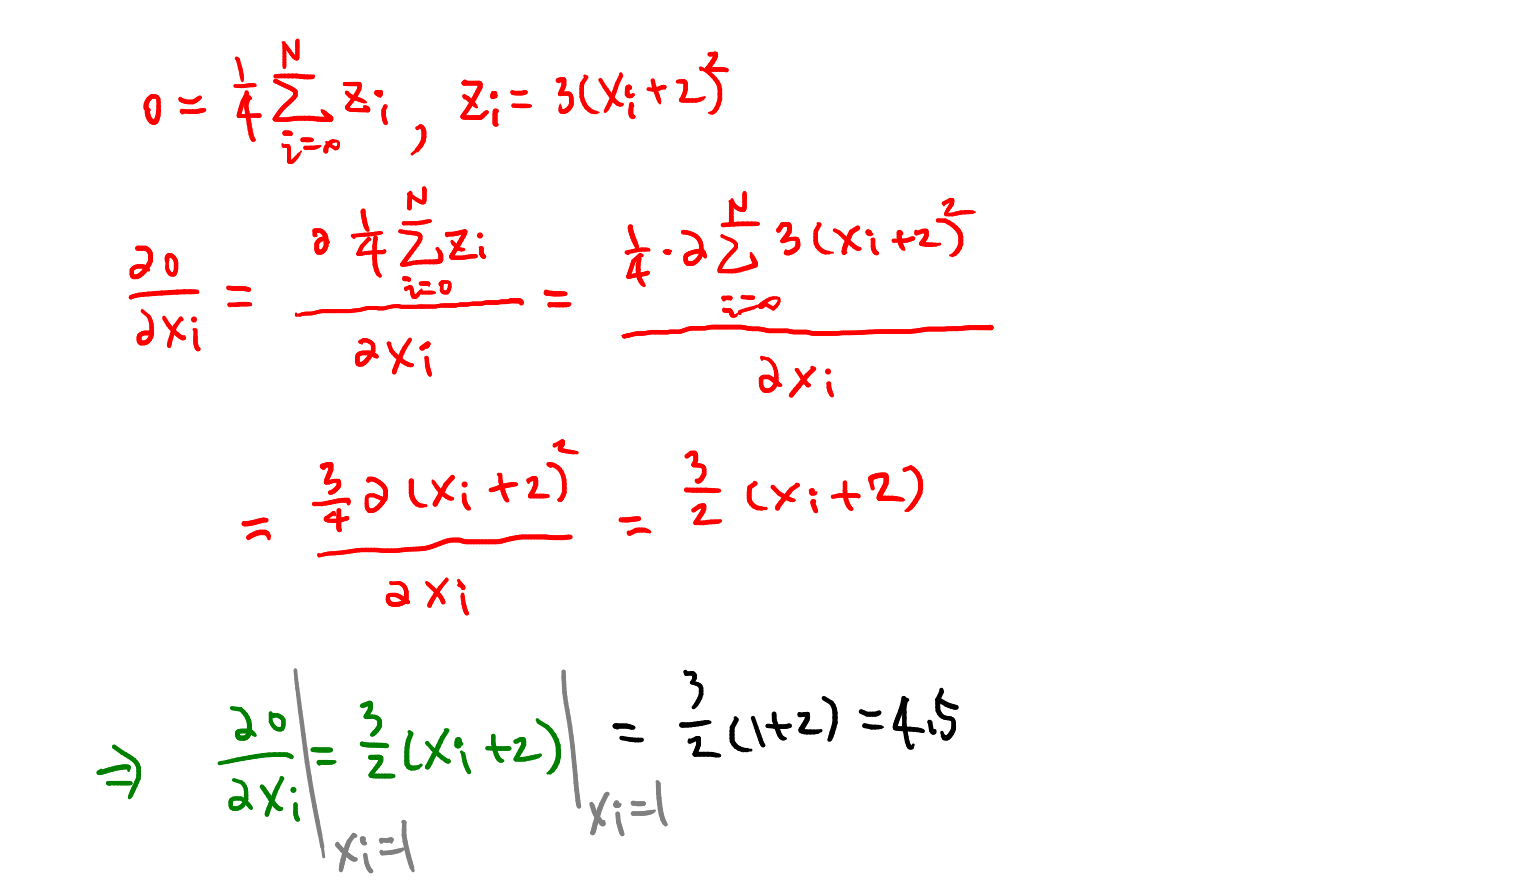 0 = 1/4 Σ_{i=0}^{N} z_i , z_i = 3(x_i+2)^2
∂0/∂x_i = ∂ 1/4 Σ_{i=0}^{N} z_i / ∂x_i = 1/4 · ∂ Σ_{i=0}^{N} 3(x_i+2)^2 / ∂x_i
= 3/4 ∂(x_i+2)^2 / ∂x_i = 3/2 (x_i+2)
⇒ ∂0/∂x_i |_{x_i=1} = 3/2 (x_i+2) |_{x_i=1} = 3/2 (1+2) = 4.5